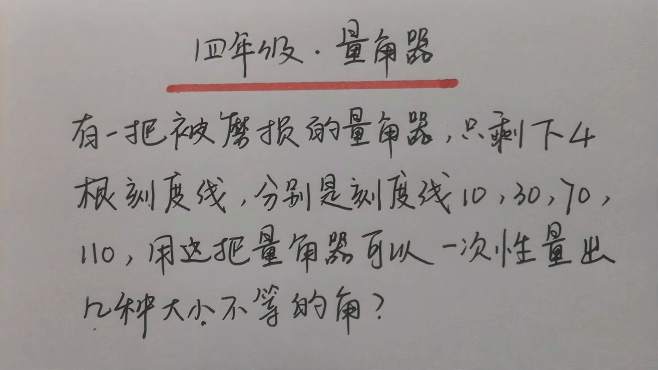 四年级·量角器
有一把被磨损的量角器,只剩下4
根刻度线,分别是刻度线10,30,70,
110,用这把量角器可以一次性量出
几种大小不等的角?